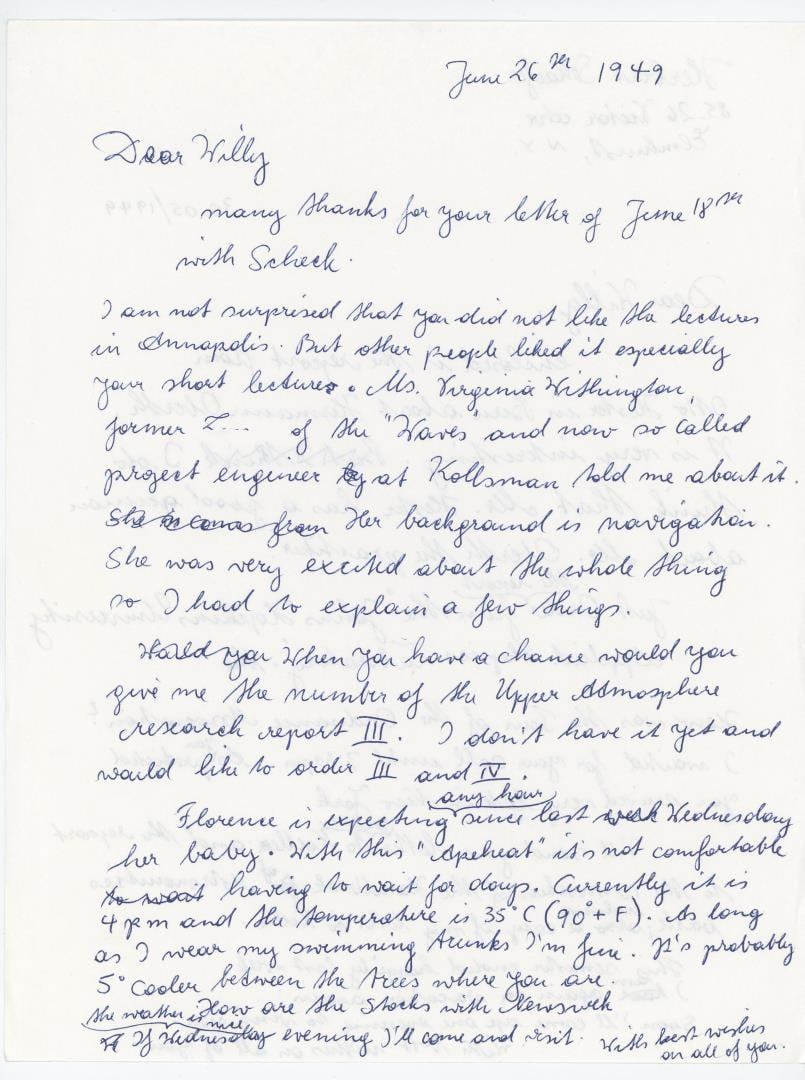 June 26th 1949
Dear Willy
many thanks for your letter of June 18th
with Scheck.
I am not surprised that you did not like the lectures
in Annapolis. But other people liked it especially
your short lectures. Ms. Virginia Withington,
former Z... of the "Waves and now so called
project engineer by at Kollsman told me about it.
She is comes from Her background is navigation.
She was very excited about the whole thing
so I had to explain a few things.
Would you When you have a chance would you
give me the number of the Upper Atmosphere
research report III. I don't have it yet and
would like to order III and IV.
any hour
Florence is expecting since last week Wednesday
her baby. With this "Apeheat" it's not comfortable
to wait having to wait for days. Currently it is
4 pm and the temperature is 35°C (90°+ F). As long
as I wear my swimming trunks I'm fine. It's probably
5° cooler between the trees where you are.
How are the Stocks with Newsweek
the weather is nice
If Wednesday evening I'll come and visit. With best wishes
on all of you.